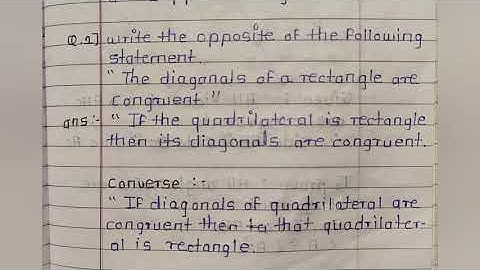 Q.2] write the opposite of the following
statement.
" The diagonals of a rectangle are
congruent."
ans:- " If the quadrilateral is rectangle
then its diagonals are congruent.
Converse :-
" If diagonals of quadrilateral are
congruent then that quadrilater-
al is rectangle.